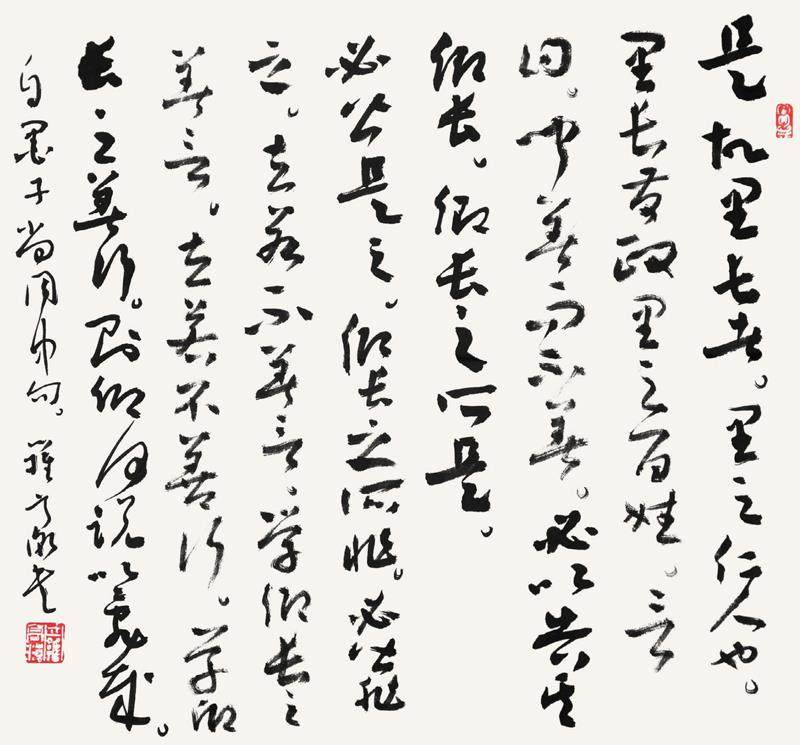 是故里长者。里之仁人也。
里长发政里之百姓。言
曰。闻善而不善。必以告其
鄉长。鄉长之所是。
必皆是之。鄉长之所非。必皆非
之。去若不善言。学鄉长之
善言。去若不善行。学鄉
长之善行。则鄉何说以乱哉。
自墨子尚同中句。书